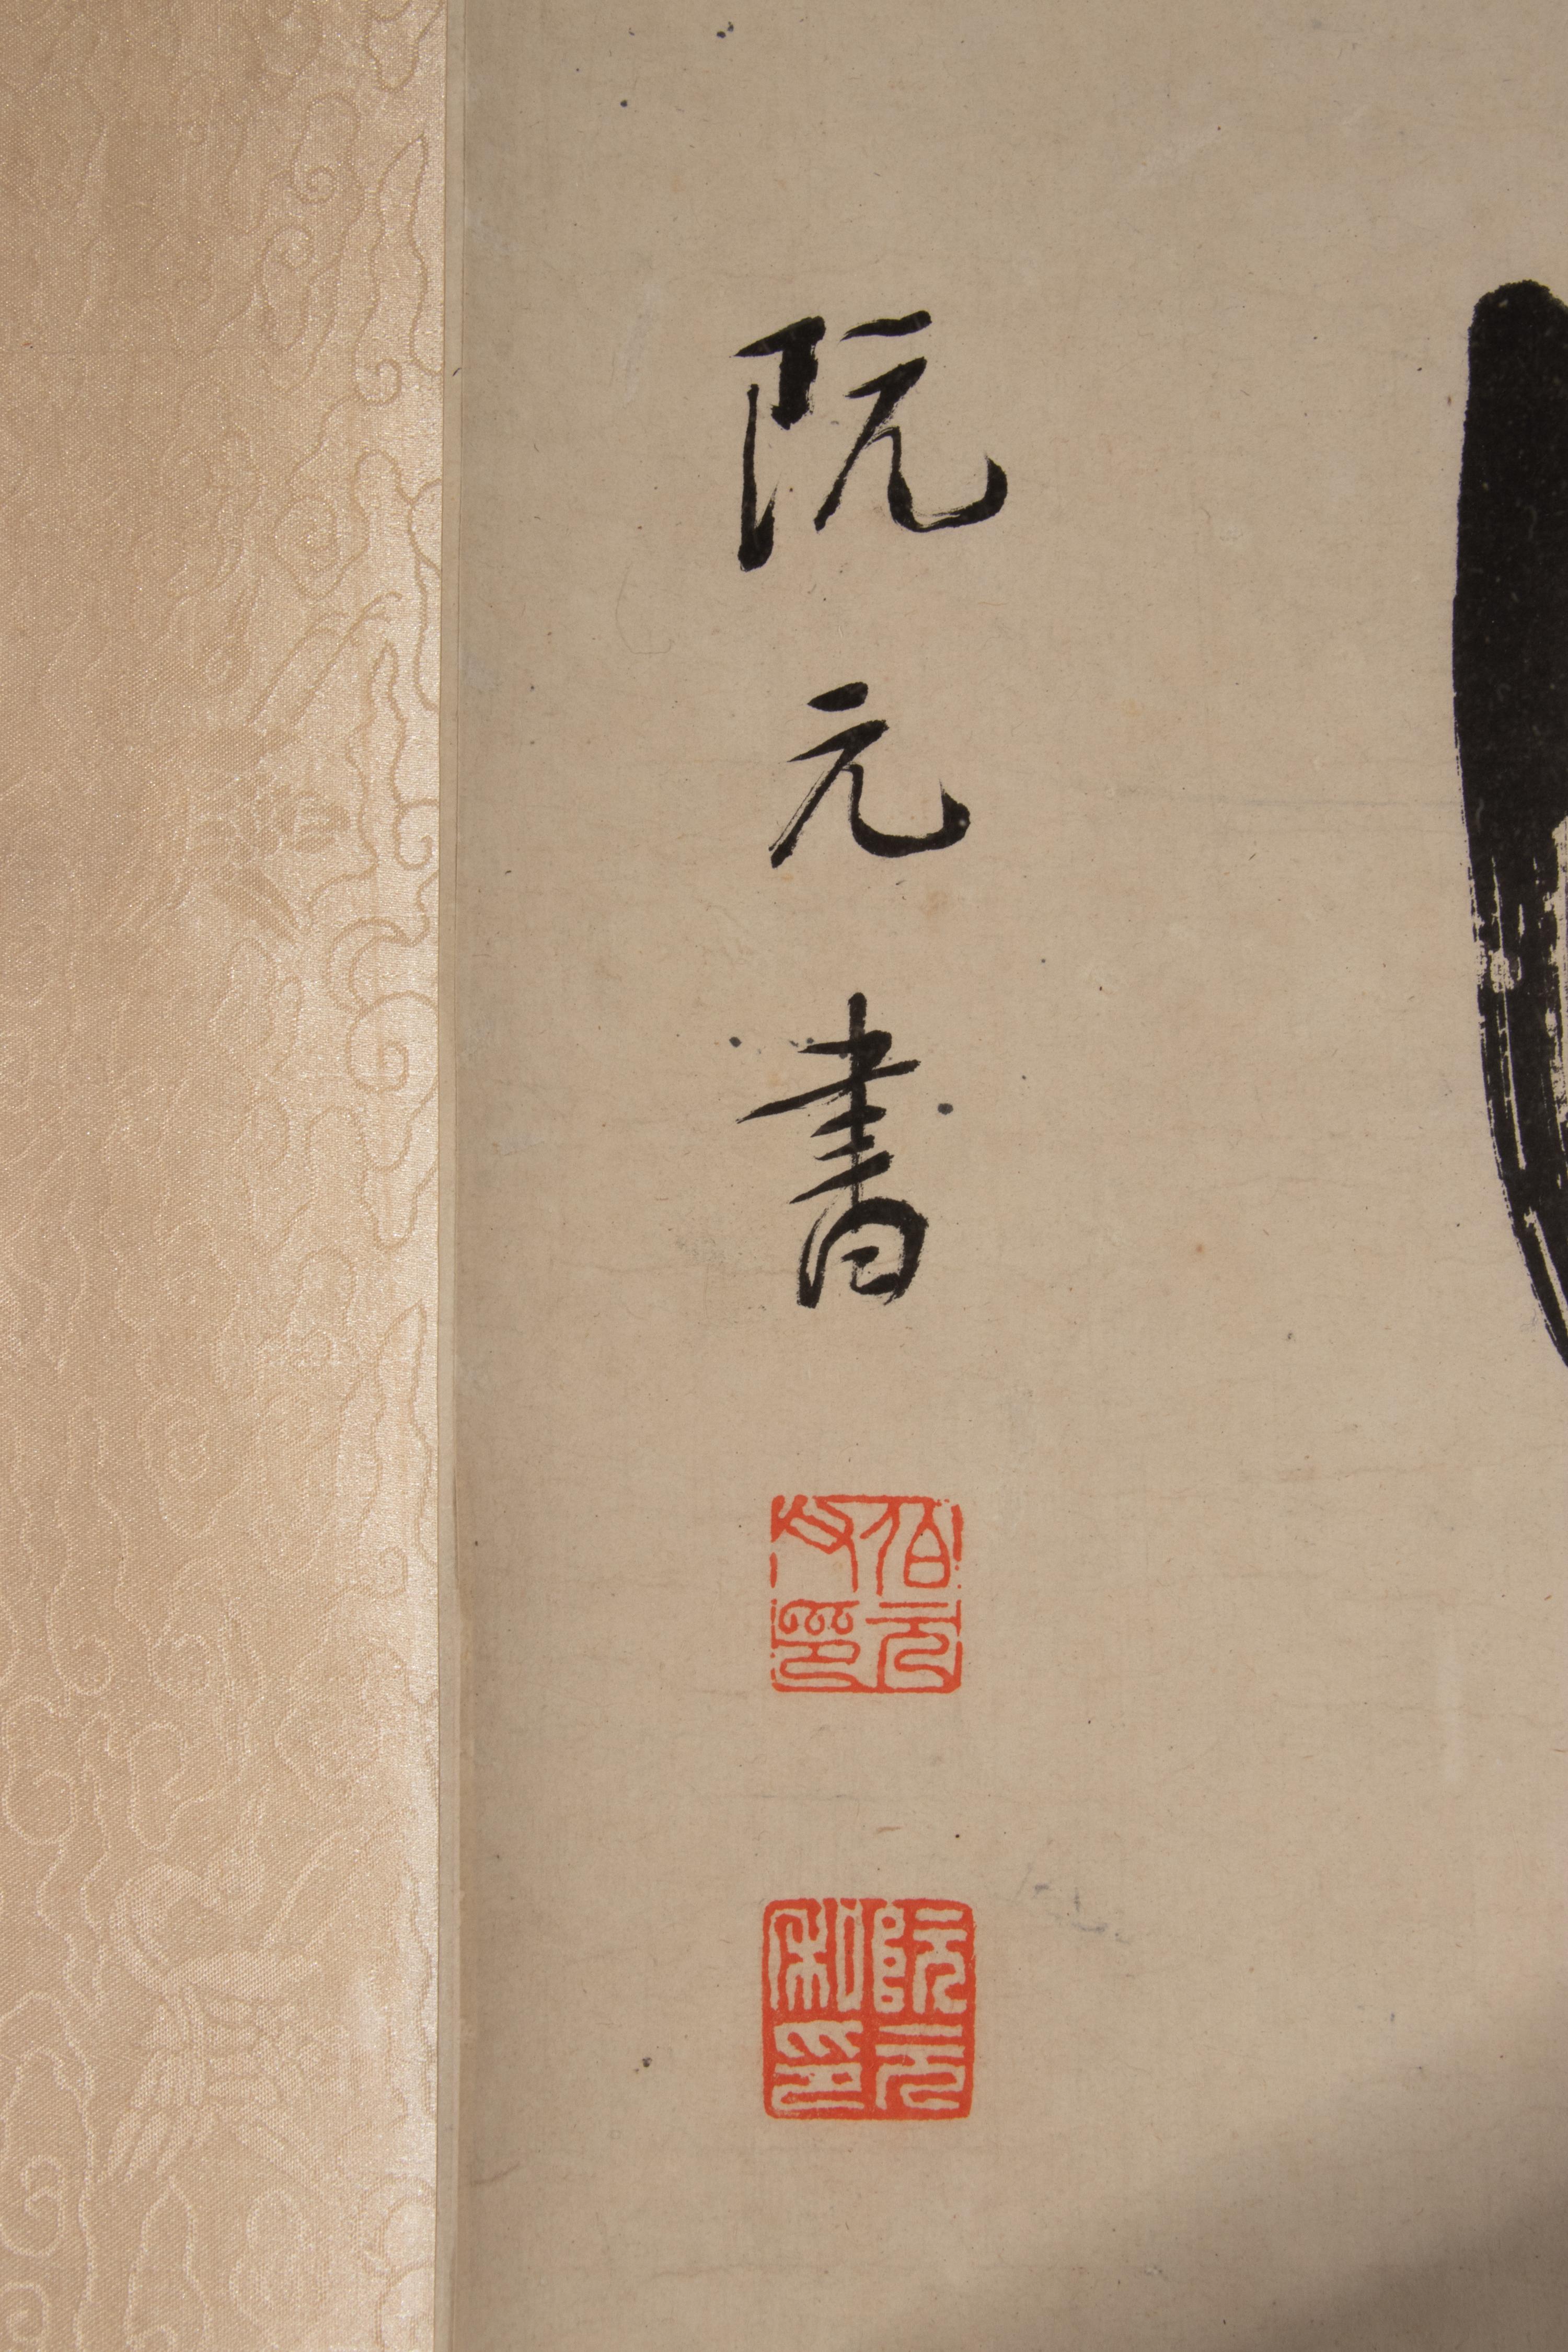 阮元書
伯元父印
阮元私印